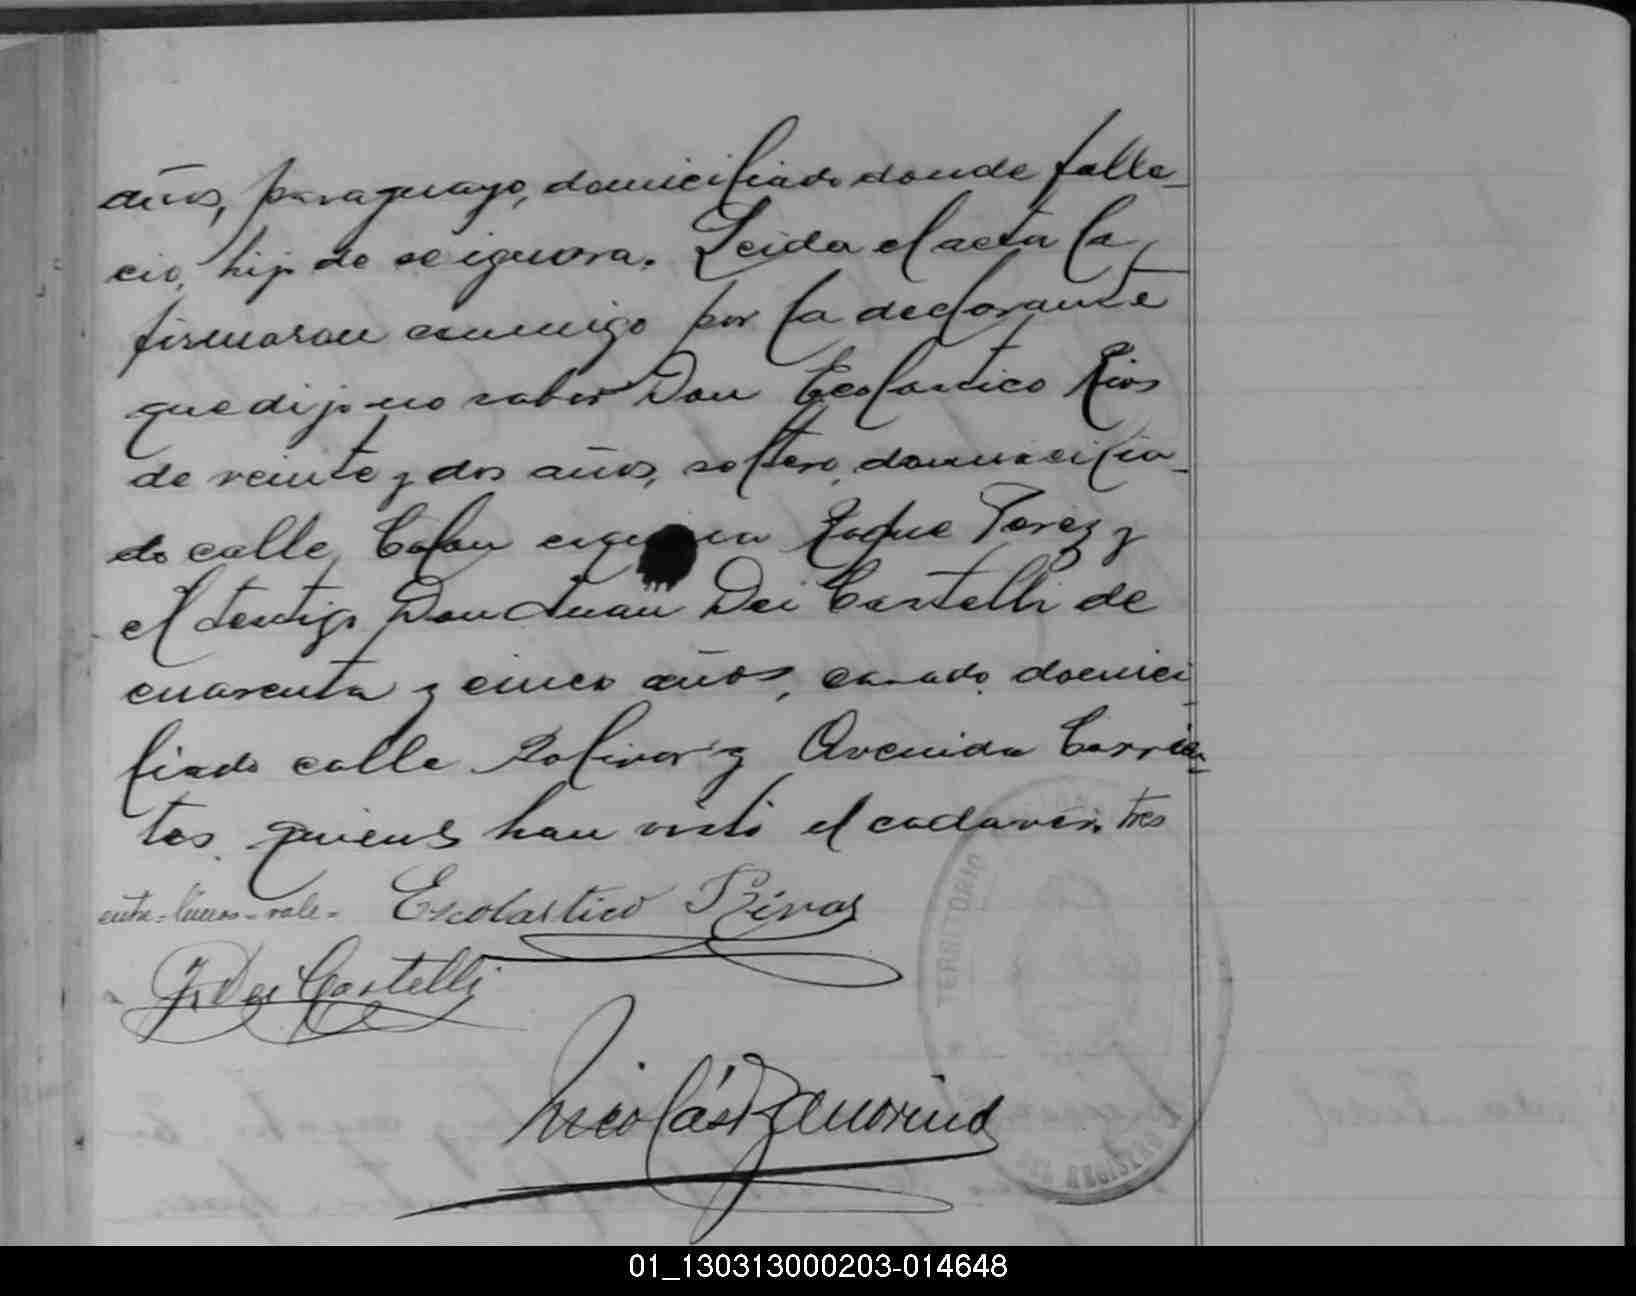 años, paraguayo, domiciliado donde falle-
cio, hijo de se ignora. Leida el acta la
firmaron conmigo por la declarante
que dijo no saber Don Escolastico Rios
de veinte y dos años, soltero, domicilia-
do calle Colon esquina Roque Perez y
el testigo Don Juan Dei Castelli de
cuarenta y cinco años, casado, domici-
liado calle Bolivar y Avenida Corrien-
tes, quienes han visto el cadaver. tres
entre-lineas-vale- Escolastico Rivas
J. Dei Castelli
Nicolás
TERRITORIO
DEL REGISTRO
01_130313000203-014648